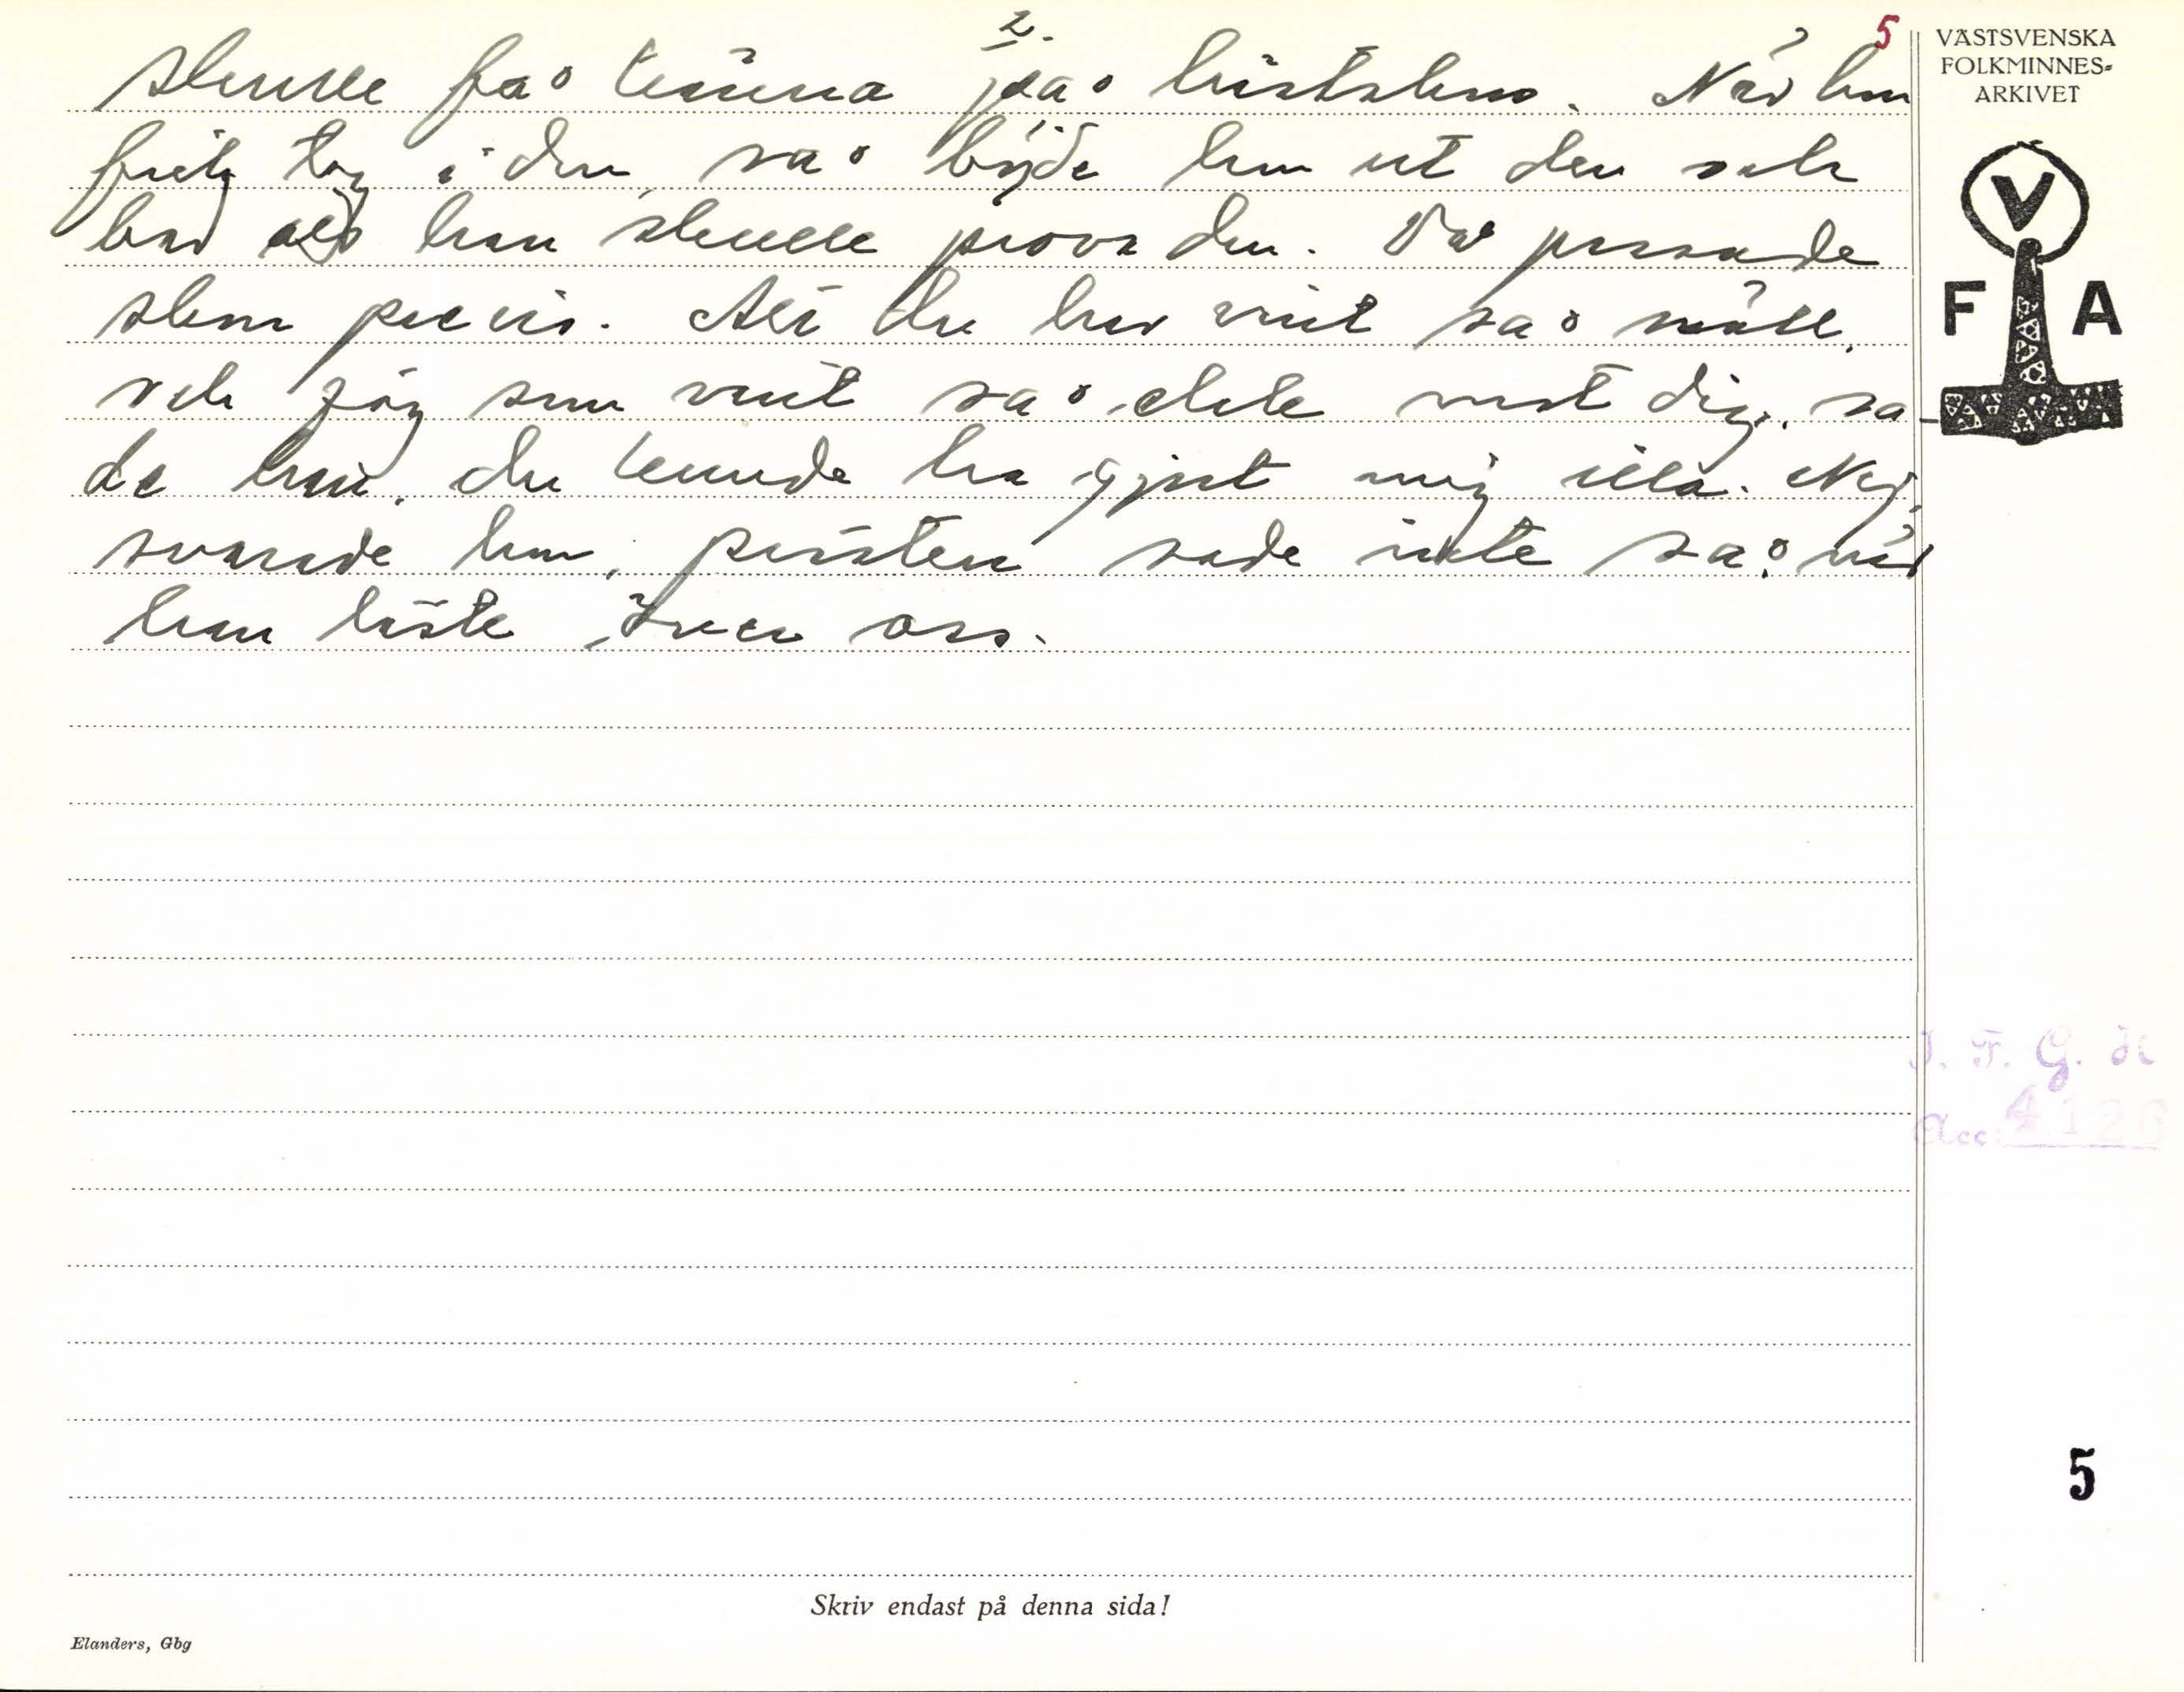 2.
5
skulle få känna på hästskon. När hon
fick tag i den, så böjde hon ut den och
bad att han skulle prova den. Då passade
skon precis. Att du har varit så snäll,
och jag som varit så elak mot dig, sa-
de han, du kunde ha gjort mig illa. Nej,
svarade hon, prästen sade inte så när
han läste över oss.
VÄSTSVENSKA
FOLKMINNES-
ARKIVET
V
F A
I. F. G. H
Acc 4126
5
Skriv endast på denna sida!
Elanders, Gbg